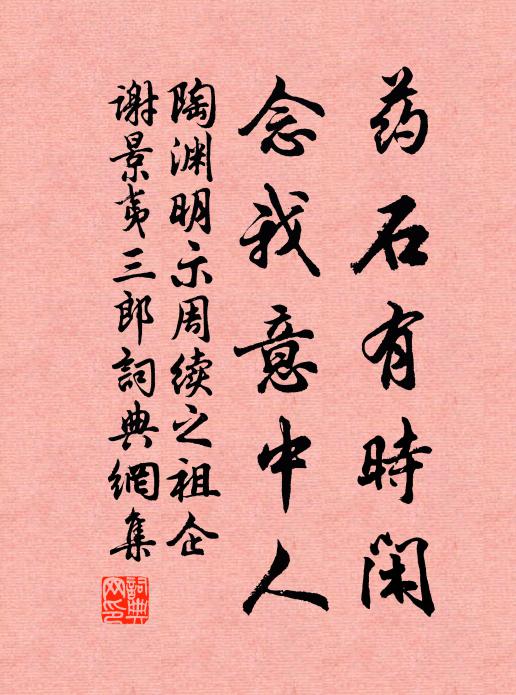 药石有時闲
念我意中人
陶渊明示周续之祖企
谢景夷三郎詞典網集
詞典网印